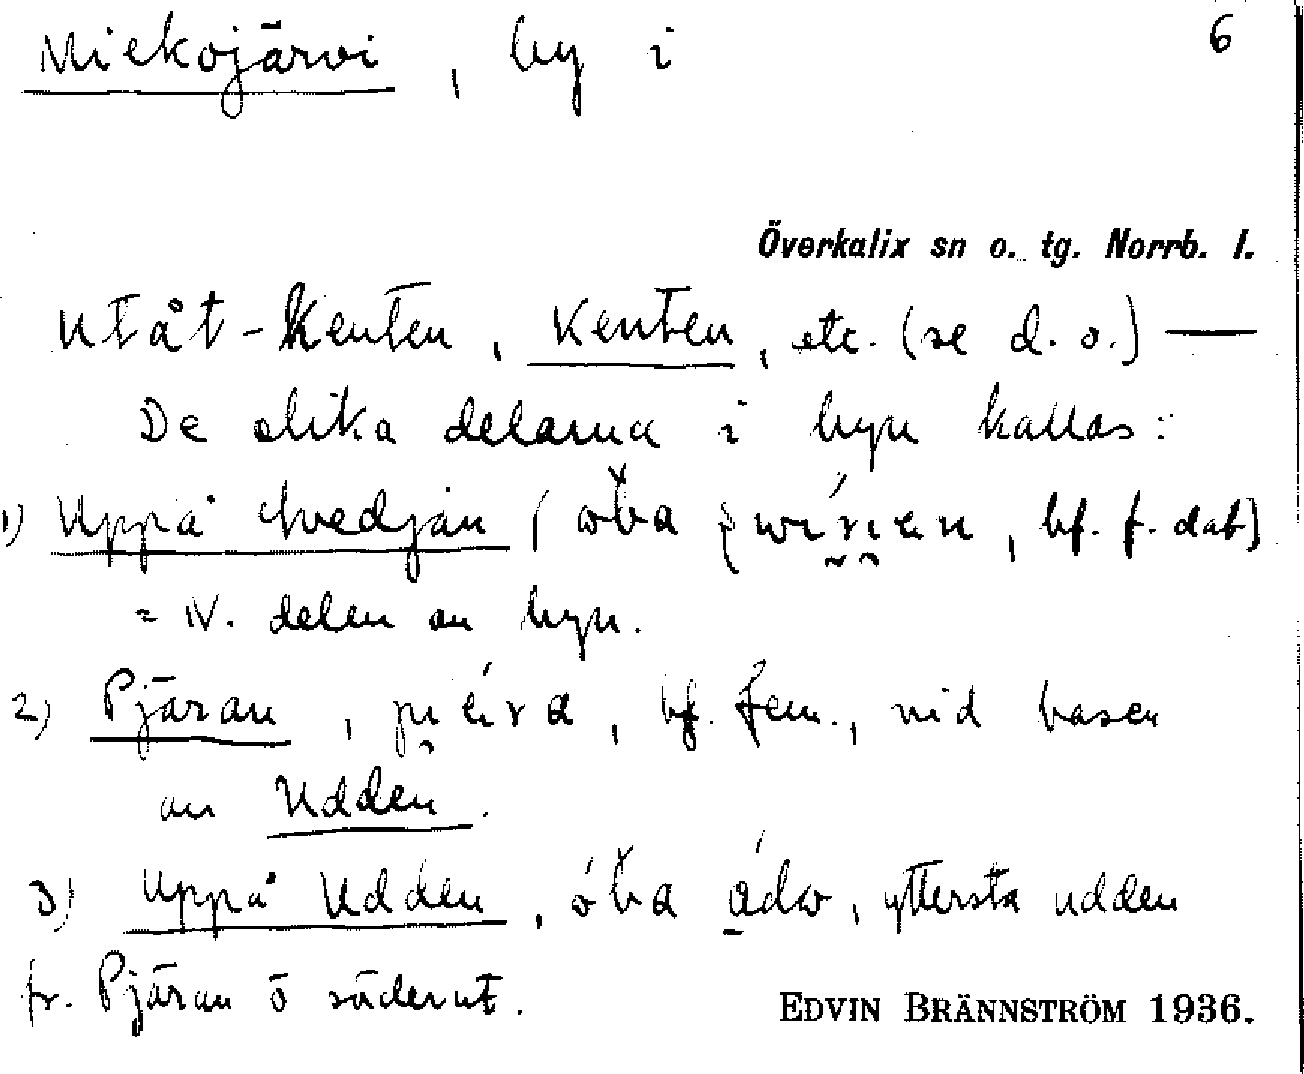 Miekojärvi, by i 6
Överkalix sn o. tg. Norrb. l.
Utåt-Kenten, Kenten, etc. (se d. o.) —
De olika delarna i byn kallas:
1) Uppå Svedjan (bf. f. dat)
= N. delen av byn.
2) Pjäran, bf. fem., vid basen
av Udden.
3) Uppå Udden, yttersta udden
fr. Pjäran ö söderut.
EDVIN BRÄNNSTRÖM 1936.